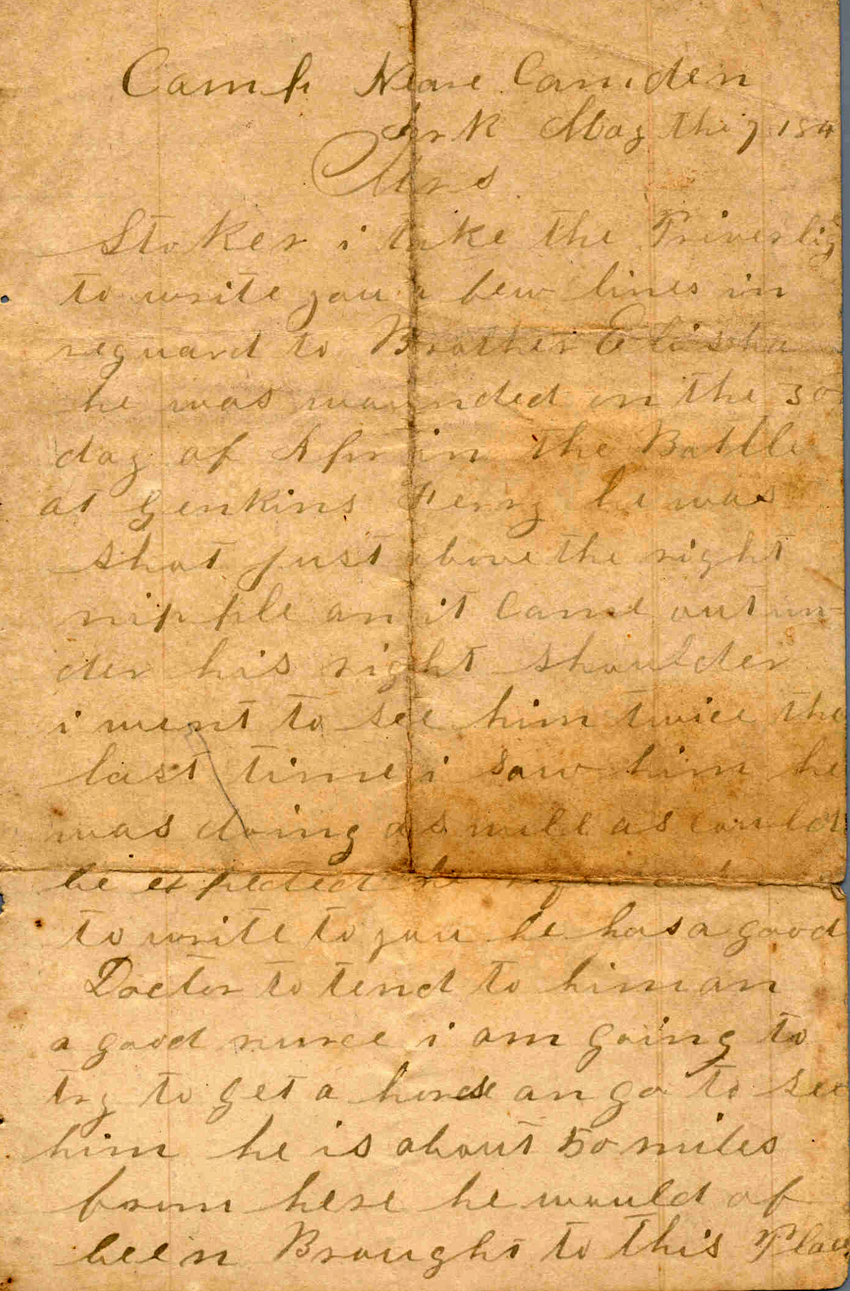 Camp Neare Camden
Ark May the 7 184
Mrs
Stoker i take the Priverlig
to write you a few lines in
reguard to Brother Elisha
he was wounded on the 30
day of Apr in the Battle
at Genkins Ferry he was
shot just above the right
nipple an it came out un-
der his right shoulder
i went to see him twice the
last time i saw him he
was doing as well as could
be expected he
to write to you he has a good
Doctor to tend to him an
a good nurce i am going to
try to get a horse an go to see
him he is about 50 miles
from here he would of
been Brought to this Place